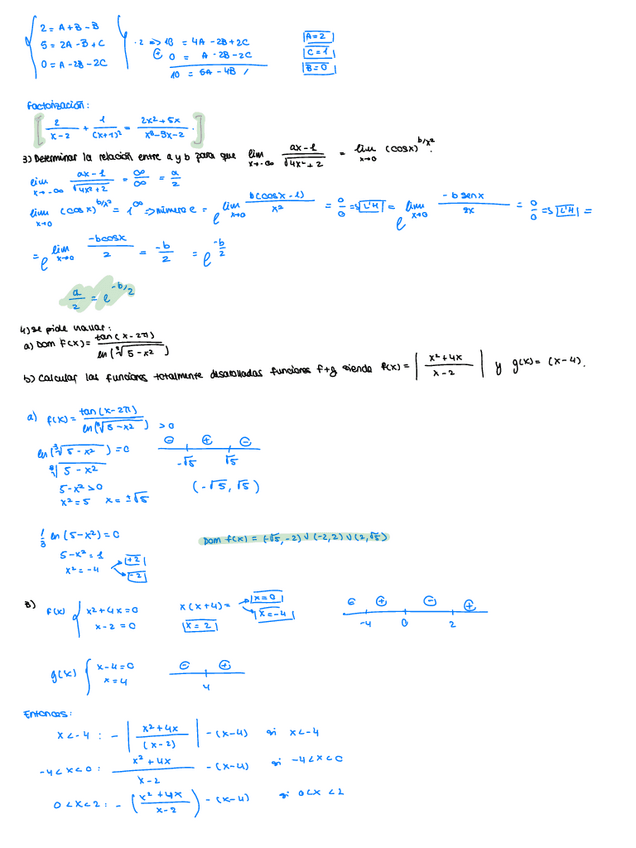 2 = A + B - B
5 = 2A - B + C
0 = A - 2B - 2C
·2 => 10 = 4A - 2B + 2C
⊕ 0 = A - 2B - 2C
10 = 5A - 4B /
A = 2
C = 1
B = 0
Factorización:
[ 2/(x-2) + 1/(x+1)² = (2x² + 5x)/(x³ - 3x - 2) . ]
3) Determinar la relación entre a y b para que lim x→-∞ (ax-1)/√(4x²+2) = lim x→0 (cosx)^(b/x²).
lim x→-∞ (ax-1)/√(4x²+2) = ∞/∞ = a/2
lim x→0 (cosx)^(b/x²) = 1^∞ => número e = e^(lim x→0 b(cosx-1)/x²) = 0/0 => L'H = e^(lim x→0 -b senx/2x) = 0/0 => L'H =
= e^(lim x→0 -bcosx/2) = -b/2 = e^(-b/2)
a/2 = e^(-b/2)
4) Se pide hallar:
a) Dom f(x) = tan(x-2π)/ln(∛(5-x²))
b) Calcular las funciones totalmente desarrolladas funciones f+g siendo f(x) = | (x²+4x)/(x-2) | y g(x) = (x-4).
a) f(x) = tan(x-2π)/ln(∛(5-x²)) > 0
ln(∛(5-x²)) = 0
⊖ ⊕ ⊖
-√5 √5
∛(5-x²)
5-x² > 0
x² = 5 x = ±√5
(-√5, √5)
1/3 ln(5-x²) = 0
Dom f(x) = (-√5, -2) ∪ (-2,2) ∪ (2,√5)
5-x² = 1
x² = -4
+2
-2
B) f(x) { x²+4x = 0
x-2 = 0
x(x+4) =
x = 0
x = -4
x = 2
⊕ ⊖ ⊕
-4 0 2
g(x) { x-4 = 0
x = 4
⊖ ⊕
4
Entonces:
x < -4 : - | (x²+4x)/(x-2) | - (x-4) si x < -4
-4 < x < 0 : (x²+4x)/(x-2) - (x-4) si -4 < x < 0
0 < x < 2 : - ( (x²+4x)/(x-2) ) - (x-4) si 0 < x < 2